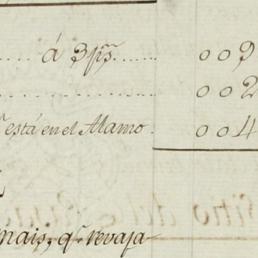 .... á 3 p.s ...... 0 0 9
........................ 0 0 2
está en el Alamo. 0 0 4
mais, q.e revaja